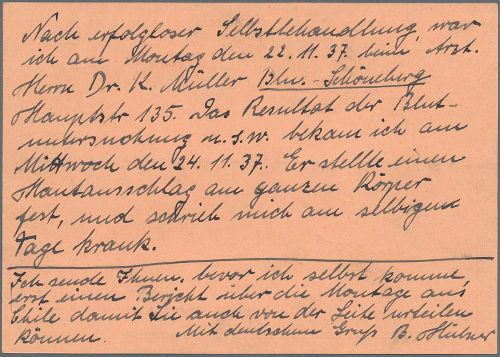 Nach erfolgloser Selbstbehandlung war
ich am Montag den 22.11.37. beim Arzt.
Herrn Dr. K. Müller Bln.-Schöneberg
Hauptstr 135. Das Resultat der Blut-
untersuchung u.s.w. bekam ich am
Mittwoch den 24.11.37. Er stellte einen
Hautausschlag am ganzen Körper
fest, und schrieb mich am selbigem
Tage krank.
Ich sende Ihnen, bevor ich selbst komme,
erst einen Bericht über die Montage aus
Chile damit Sie auch von der Seite urteilen
können. Mit deutschem Gruß B. Hübner